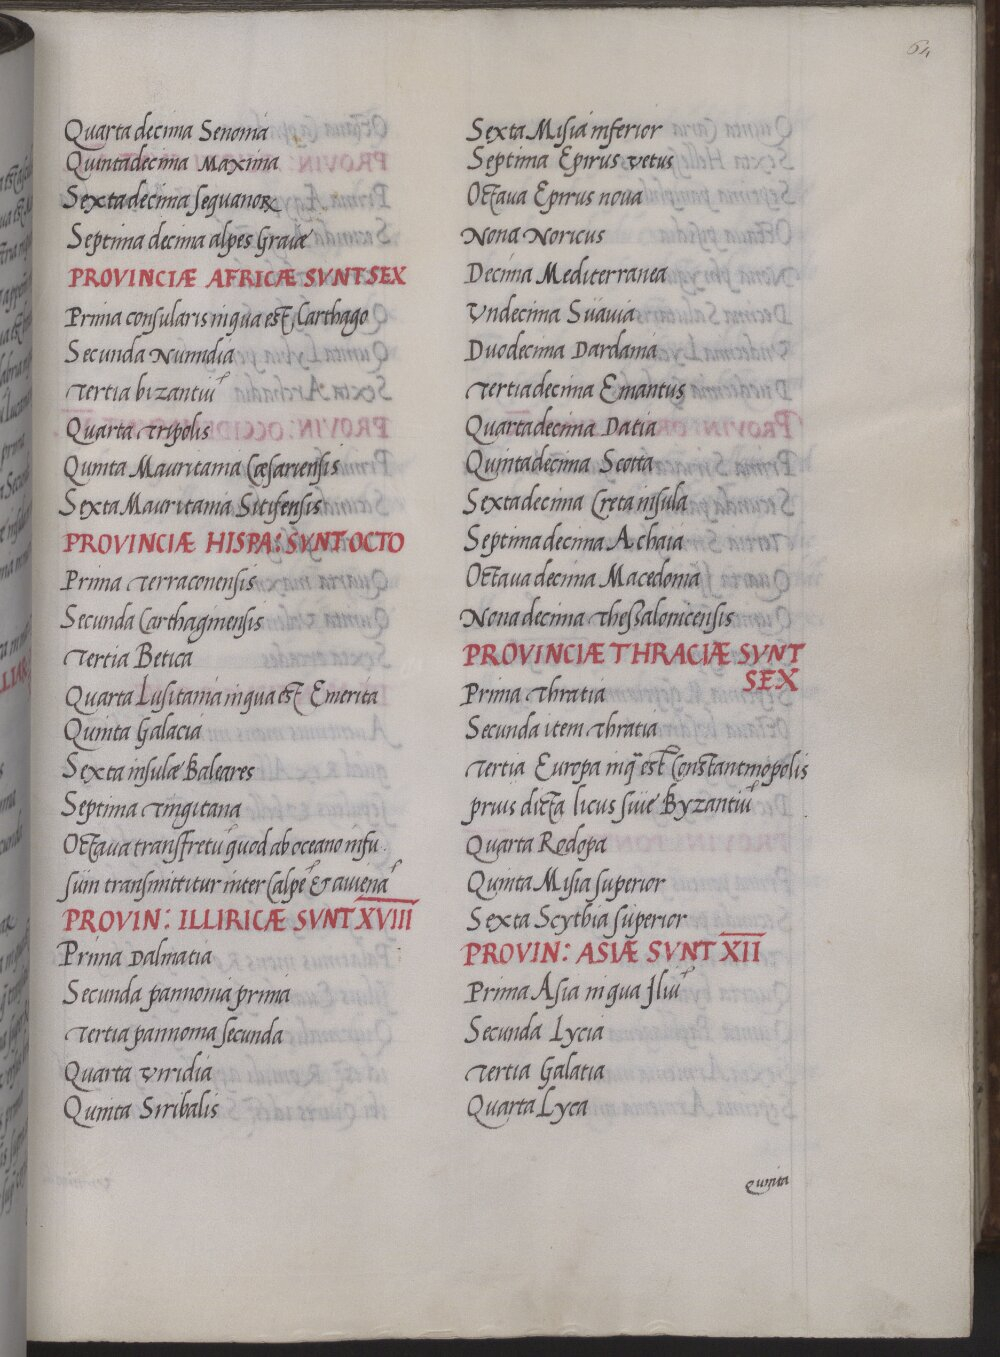 64
Quarta decima Senonia
Quintadecima Maxima
Sexta decima sequanoꝝ
Septima decima alpes Graiæ
PROVINCIÆ AFRICÆ SVNT SEX
Prima consularis in qua est Carthago
Secunda Numidia
Tertia bizantiū
Quarta Tripolis
Quinta Mauritania Cæsariensis
Sexta Mauritania Sitifensis
PROVINCIÆ HISPA: SVNT OCTO
Prima Terraconensis
Secunda Carthaginensis
Tertia Betica
Quarta Lusitania in qua est Emerita
Quinta Galacia
Sexta insulæ Baleares
Septima Tingitana
Octava transfretū quod ab oceano infu
sum transmittitur inter Calpē & avienā
PROVIN: ILLIRICÆ SVNT XVIII
Prima Dalmatia
Secunda pannonia prima
Tertia pannonia secunda
Quarta Viridia
Quinta Siribalis
Sexta Misia inferior
Septima Epirus vetus
Octava Epirus nova
Nona Noricus
Decima Mediterranea
Vndecima Suavia
Duodecima Dardania
Tertiadecima Emantus
Quartadecima Datia
Quintadecima Scotta
Sextadecima Creta insula
Septimadecima Achaia
Octavadecima Macedonia
Nonadecima Thessalonicensis
PROVINCIÆ THRACIÆ SVNT
SEX
Prima Thratia
Secunda item Thratia
Tertia Europa in q̄ est Constantinopolis
prius dicta licus sive Byzantiū
Quarta Rodopa
Quinta Misia superior
Sexta Scythia superior
PROVIN: ASIÆ SVNT XII
Prima Asia in qua Iliū
Secunda Lycia
Tertia Galatia
Quarta Lyca
Quinta